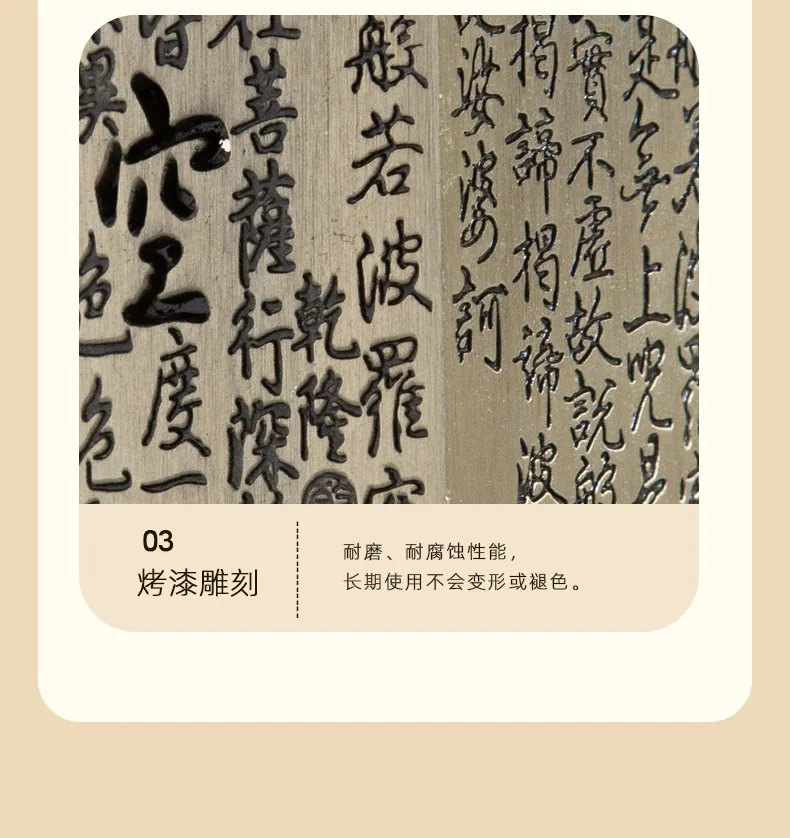 是無上咒是
實不虛故說般
揭諦揭諦波
娑婆訶
般若波羅
乾隆
在菩薩行深
皆空度一
異色色
03
烤漆雕刻
耐磨、耐腐蚀性能，
长期使用不会变形或褪色。